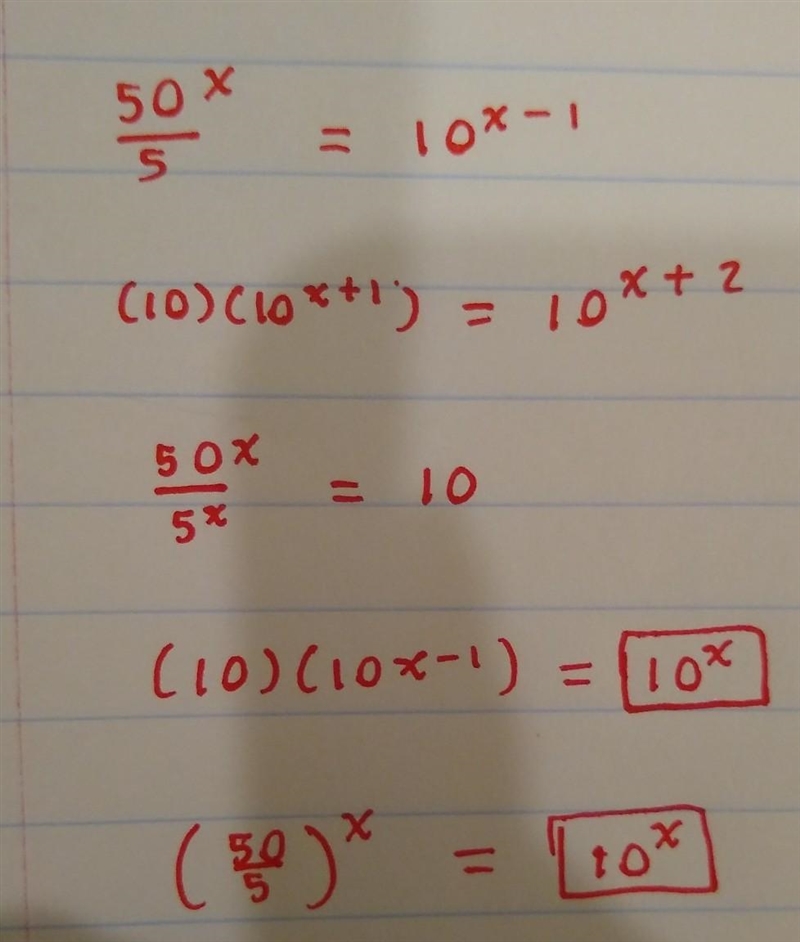 50^x / 5 = 10^(x - 1)
(10)(10^(x+1)) = 10^(x + 2)
50^x / 5^x = 10
(10)(10x-1) = 10^x
(50/5)^x = 10^x